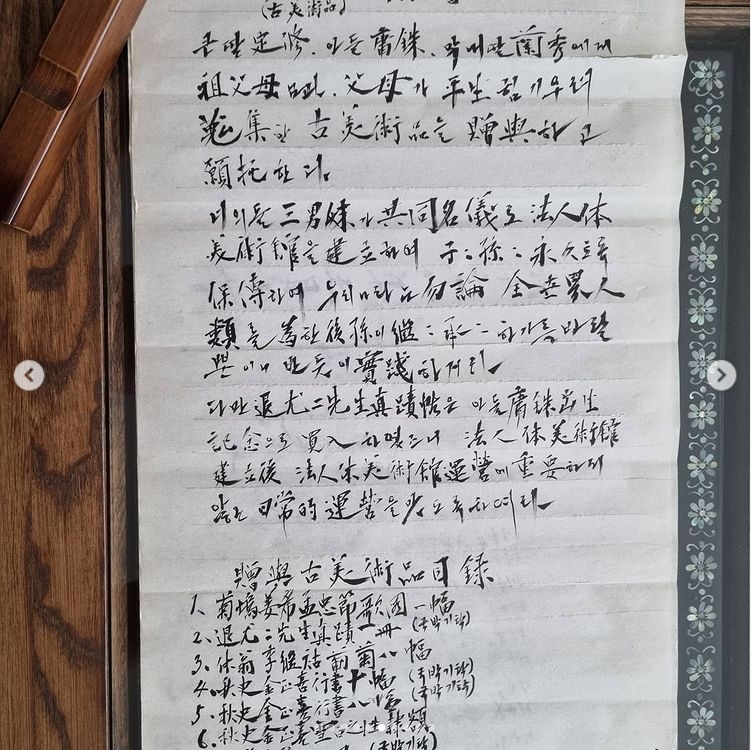 (古美術品)
큰딸 定修. 아들 膺銖. 막내딸 蘭秀에게
祖父母님과 父母가 平生 힘 기우려
蒐集한 古美術品을 贈與하고
願托한다.
너의들 三男妹가 共同名義로 法人体
美術館을 建立하여 子〻孫〻 永久토록
保傳하여 우리나라는 勿論 全世界人
類를 為한 後孫이 継〻承〻 하기를 바랄
뿐이니 반듯이 實踐하거라
다만 退尤二先生真蹟帖은 아들 膺銖 出生
記念으로 買入하였으니 法人体美術館
建立後 法人体美術館 運營에 重要하게
日常的 運營을 하여라
贈與古美術品目錄
1. 菊塢姜希孟忠節歌圖 一幅
2. 退尤二先生真蹟 一冊 (국박기탁)
3. 休翁 李継祜 葡萄 八幅
4. 秋史 金正喜 行書 十幅 (국박기탁)
5. 秋史 金正喜 行書 八幅 (국박기탁)
6. 秋史 金正喜 隸額
(국박기탁)